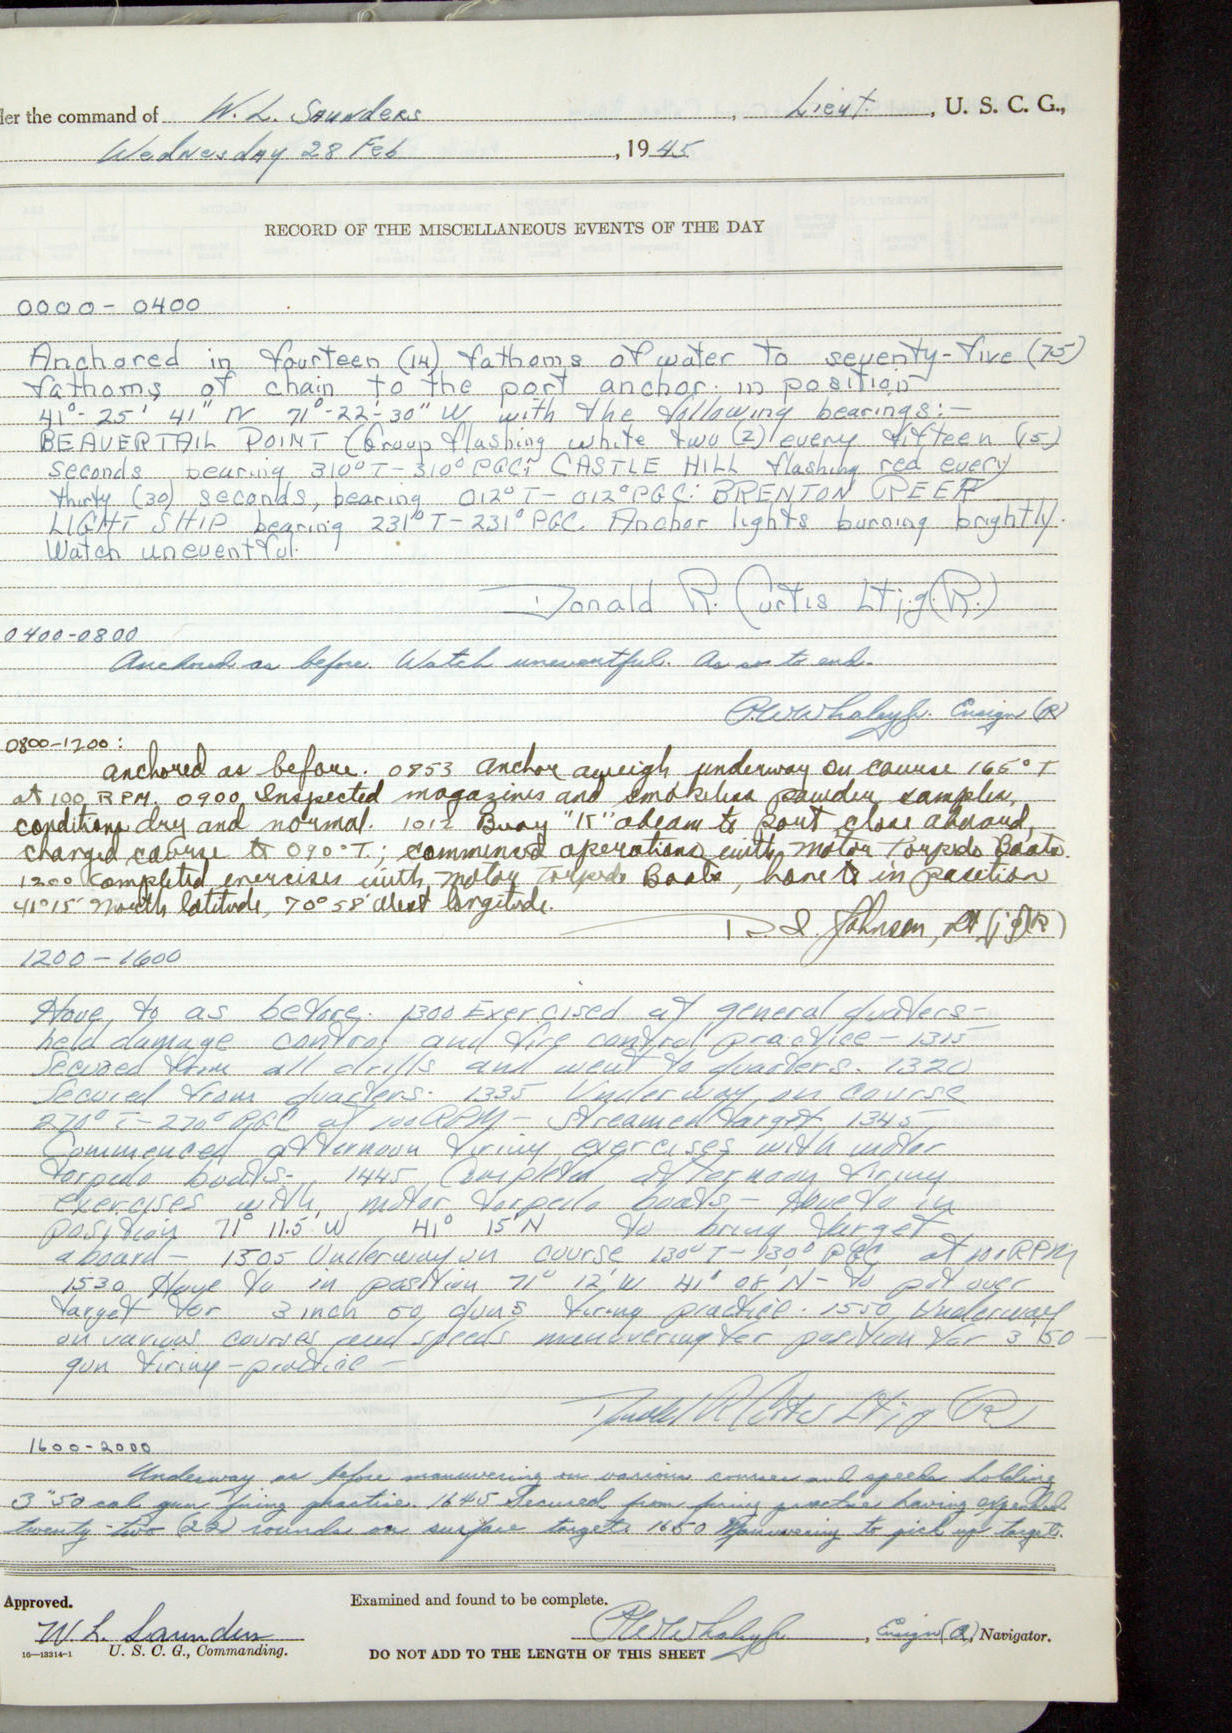 der the command of W. L. Saunders, Lieut., U. S. C. G.,
Wednesday 28 Feb, 1945
RECORD OF THE MISCELLANEOUS EVENTS OF THE DAY
0000 - 0400
Anchored in fourteen (14) fathoms of water to seventy-five (75)
fathoms of chain to the port anchor in position
41°-25' 41" N 71°-22'-30" W with the following bearings:-
BEAVERTAIL POINT (Group flashing white two (2) every fifteen (15)
seconds bearing 310°T - 310° PGC; CASTLE HILL flashing red every
thirty (30) seconds, bearing 012°T - 012°PGC; BRENTON REEF
LIGHT SHIP bearing 231°T - 231° PGC. Anchor lights burning brightly.
Watch uneventful.
Donald R. Curtis Ltj.g.(R.)
0400-0800
Anchored as before. Watch uneventful. As on to end.
P.W. Whaley Jr. Ensign (R)
0800-1200:
Anchored as before. 0853 Anchor aweigh underway on course 165°T
at 100 RPM. 0900 Inspected magazines and smokeless powder samples,
conditions dry and normal. 1012 Buoy "K" abeam to port close aboard,
changed course to 090°T.; commenced operations with Motor Torpedo Boats.
1200 completed exercises with Motor Torpedo Boats, hove to in position
41°15' North latitude, 70°58' West longitude.
D. I. Johnson, Lt (jg)(R)
1200 - 1600
Hove to as before. 1300 Exercised at general quaters-
held damage control and fire control practice - 1315
Secured from all drills and went to quarters. 1320
Secured from quarters. 1335 Underway on course
270° T - 270° PGC at 100 RPM - streamed target 1345
Commenced afternoon firing exercises with motor
torpedo boats. 1445 Completed afternoon firing
exercises with motor torpedo boats - Hove to in
position 71° 11.5 W 41° 15'N to bring target
aboard - 1505 Underway on course 130°T - 130° PGC at 101 RPM
1530 Hove to in position 71° 12' W 41° 08' N - to put over
target for 3 inch 50 guns firing practice. 1550 Underway
on various courses and speeds maneuvering for position for 3 50 -
gun firing - practice -
Donald R Curtis Ltjg (R)
1600-2000
Underway as before maneuvering on various courses and speeds holding
3"50 cal gun firing practise. 1645 Secured from firing practise having expended
twenty-two (22) rounds on surface targets 1650 Maneuvering to pick up target.
Approved.
Examined and found to be complete.
W. L. Saunders
U. S. C. G., Commanding.
P.W. Whaley Jr., Ensign (R), Navigator.
16—13314-1
DO NOT ADD TO THE LENGTH OF THIS SHEET